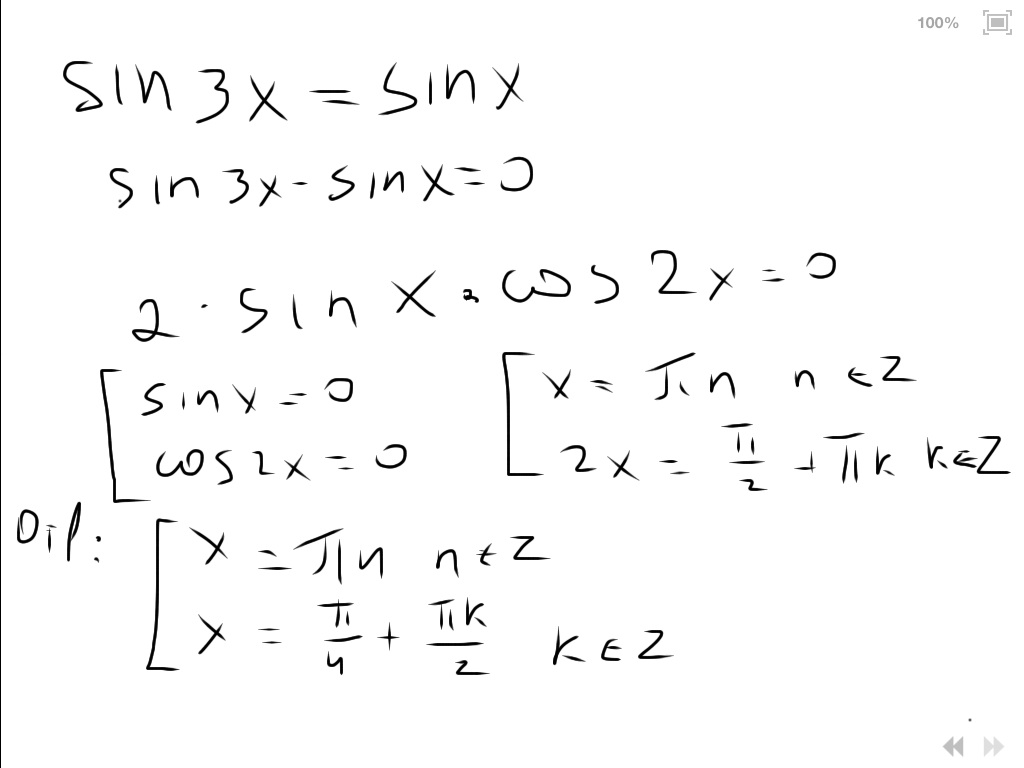 100%
sin 3x = sin x
sin 3x - sin x = 0
2 · sin x · cos 2x = 0
[ sin x = 0 [ x = πn n ∈ Z
cos 2x = 0 2x = π/2 + πk k ∈ Z
[ x = πn n ∈ Z
x = π/4 + πk/2 k ∈ Z